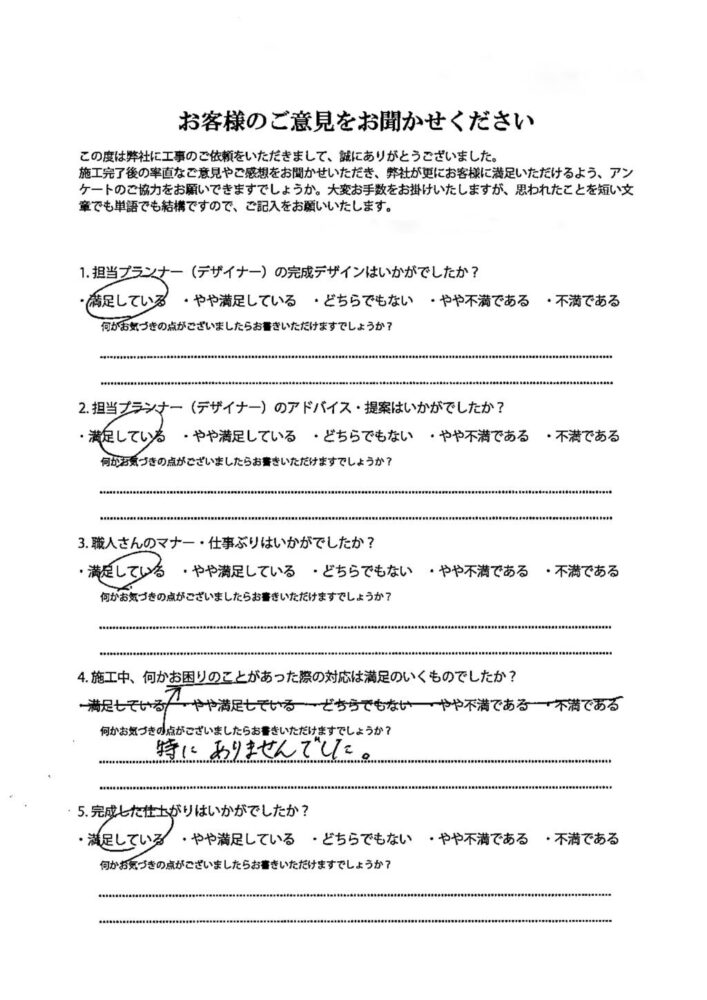 お客様のご意見をお聞かせください
この度は弊社に工事のご依頼をいただきまして、誠にありがとうございました。
施工完了後の率直なご意見やご感想をお聞かせいただき、弊社が更にお客様に満足いただけるよう、アン
ケートのご協力をお願いできますでしょうか。大変お手数をお掛けいたしますが、思われたことを短い文
章でも単語でも結構ですので、ご記入をお願いいたします。
1. 担当プランナー（デザイナー）の完成デザインはいかがでしたか？
・満足している ・やや満足している ・どちらでもない ・やや不満である ・不満である
何かお気づきの点がございましたらお書きいただけますでしょうか？
2. 担当プランナー（デザイナー）のアドバイス・提案はいかがでしたか？
・満足している ・やや満足している ・どちらでもない ・やや不満である ・不満である
何かお気づきの点がございましたらお書きいただけますでしょうか？
3. 職人さんのマナー・仕事ぶりはいかがでしたか？
・満足している ・やや満足している ・どちらでもない ・やや不満である ・不満である
何かお気づきの点がございましたらお書きいただけますでしょうか？
4. 施工中、何かお困りのことがあった際の対応は満足のいくものでしたか？
・満足している ・やや満足している ・どちらでもない ・やや不満である ・不満である
何かお気づきの点がございましたらお書きいただけますでしょうか？
特にありませんでした。
5. 完成した仕上がりはいかがでしたか？
・満足している ・やや満足している ・どちらでもない ・やや不満である ・不満である
何かお気づきの点がございましたらお書きいただけますでしょうか？